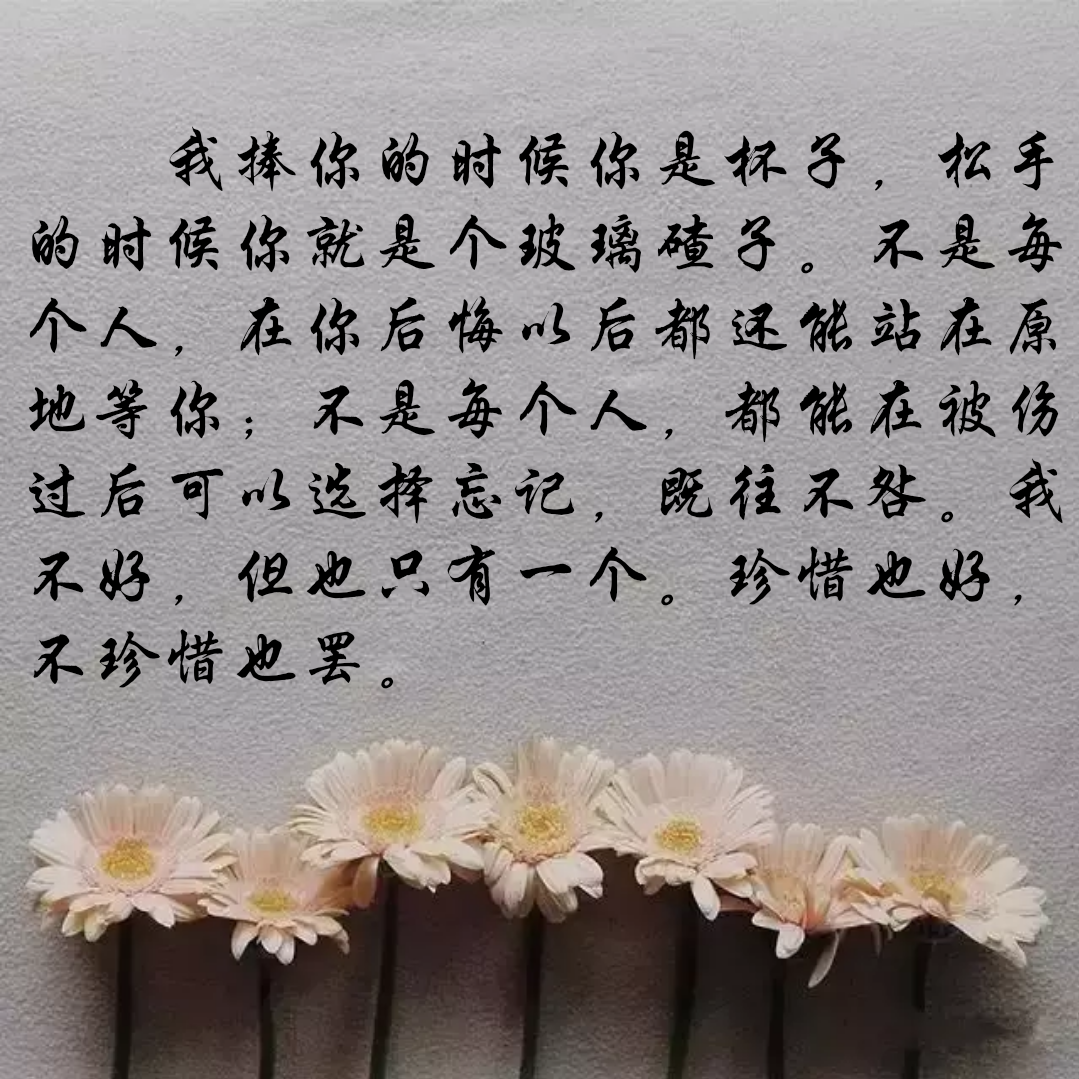 我捧你的时候你是杯子，松手
的时候你就是个玻璃碴子。不是每
个人，在你后悔以后都还能站在原
地等你；不是每个人，都能在被伤
过后可以选择忘记，既往不咎。我
不好，但也只有一个。珍惜也好，
不珍惜也罢。